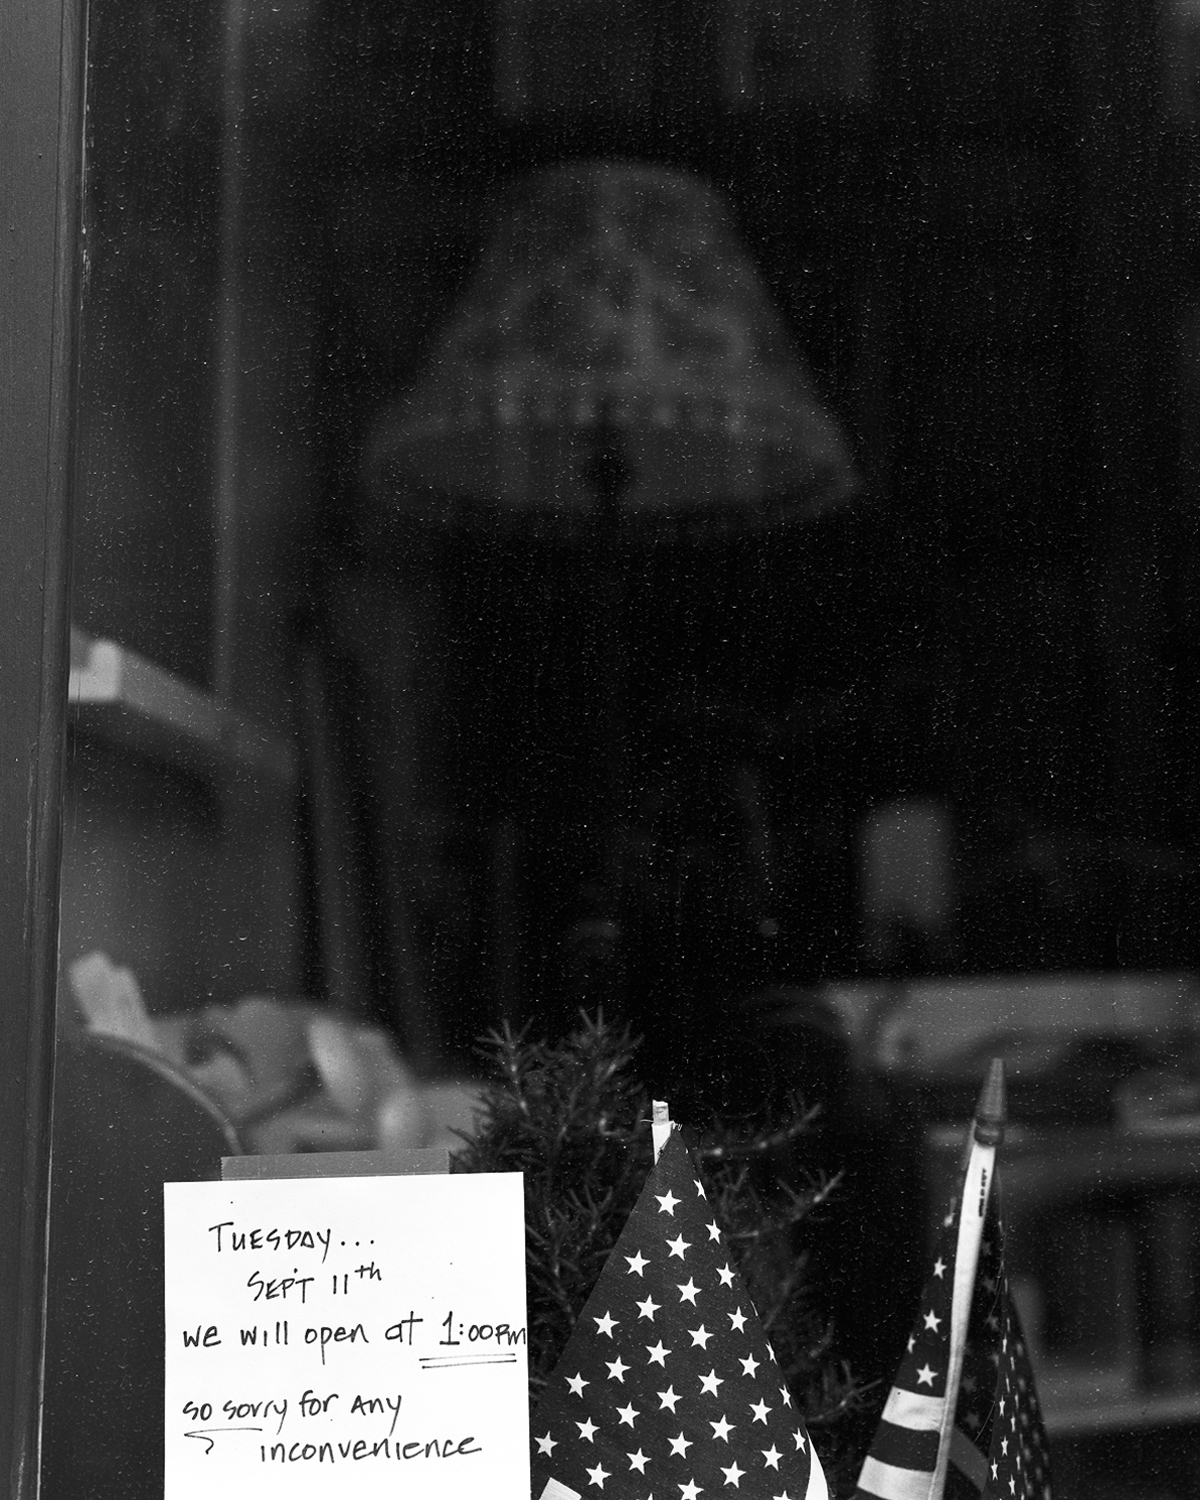 TUESDAY...
SEPT 11th
we will open at 1:00pm
so sorry for Any
inconvenience